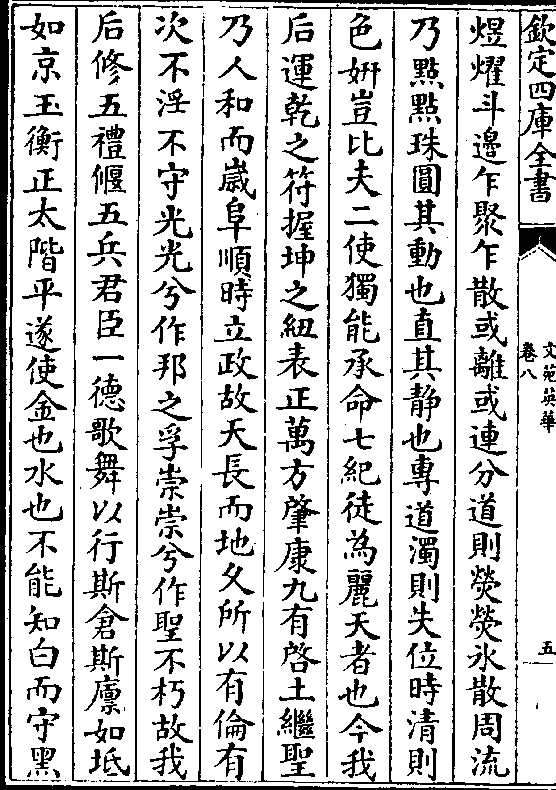 欽定四庫全書
文苑英華
卷八
五
煜燿斗邊乍聚乍散或離或連分道則熒熒氷散周流
乃㸃㸃珠圓其動也直其静也專道濁則失位時清則
色妍豈比夫二使獨能承命七紀徒為麗天者也今我
后運乾之符握坤之紐表正萬方肇康九有啓土繼聖
乃人和而嵗阜順時立政故天長而地久所以有倫有
次不淫不守光光兮作邦之孚崇崇兮作聖不朽故我
后修五禮偃五兵君臣一德歌舞以行斯倉斯廪如坻
如京玉衡正太階平遂使金也水也不能知白而守黑